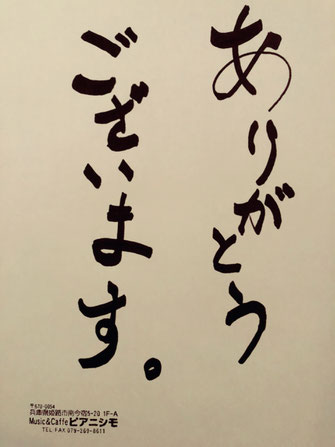 ありがとう
ございます。
〒670-0054
兵庫県姫路市南今宿5-20 1F-A
Music&Caffe ピアニシモ
TEL FAX 079-260-8611